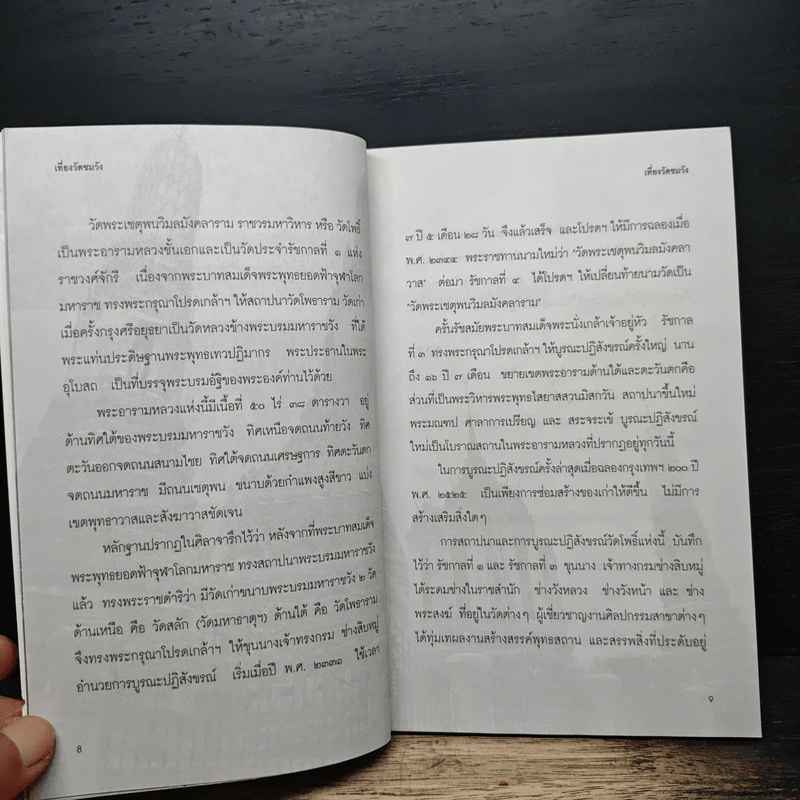 เที่ยงวัดชมวัง
วัดพระเชตุพนวิมลมังคลาราม ราชวรมหาวิหาร หรือ วัดโพธิ์
เป็นพระอารามหลวงชั้นเอกและเป็นวัดประจำรัชกาลที่ ๑ แห่ง
ราชวงศ์จักรี เนื่องจากพระบาทสมเด็จพระพุทธยอดฟ้าจุฬาโลก
มหาราช ทรงพระกรุณาโปรดเกล้าฯ ให้สถาปนาวัดโพธาราม วัดเก่า
เมื่อครั้งกรุงศรีอยุธยาเป็นวัดหลวงข้างพระบรมมหาราชวัง ที่ใต้
พระแท่นประดิษฐานพระพุทธเทวปฏิมากร พระประธานในพระ
อุโบสถ เป็นที่บรรจุพระบรมอัฐิของพระองค์ท่านไว้ด้วย
พระอารามหลวงแห่งนี้มีเนื้อที่ ๕๐ ไร่ ๓๘ ตารางวา อยู่
ด้านทิศใต้ของพระบรมมหาราชวัง ทิศเหนือจดถนนท้ายวัง ทิศ
ตะวันออกจดถนนสนามไชย ทิศใต้จดถนนเศรษฐการ ทิศตะวันตก
จดถนนมหาราช มีถนนเชตุพน ขนาบด้วยกำแพงสูงสีขาว แบ่ง
เขตพุทธาวาสและสังฆาวาสชัดเจน
หลักฐานปรากฏในศิลาจารึกไว้ว่า หลังจากที่พระบาทสมเด็จ
พระพุทธยอดฟ้าจุฬาโลกมหาราช ทรงสถาปนาพระบรมมหาราชวัง
แล้ว ทรงพระราชดำริว่า มีวัดเก่าขนาบพระบรมมหาราชวัง ๒ วัด
ด้านเหนือ คือ วัดสลัก (วัดมหาธาตุฯ) ด้านใต้ คือ วัดโพธาราม
จึงทรงพระกรุณาโปรดเกล้าฯ ให้ขุนนางเจ้าทรงกรม ช่างสิบหมู่
อำนวยการบูรณะปฏิสังขรณ์ เริ่มเมื่อปี พ.ศ. ๒๓๓๑ ใช้เวลา
8
เที่ยงวัดชมวัง
๗ ปี ๕ เดือน ๒๘ วัน จึงแล้วเสร็จ และโปรดฯ ให้มีการฉลองเมื่อ
พ.ศ. ๒๓๔๔ พระราชทานนามใหม่ว่า "วัดพระเชตุพนวิมลมังคลา
วาส" ต่อมา รัชกาลที่ ๔ ได้โปรดฯ ให้เปลี่ยนท้ายนามวัดเป็น
"วัดพระเชตุพนวิมลมังคลาราม"
ครั้นรัชสมัยพระบาทสมเด็จพระนั่งเกล้าเจ้าอยู่หัว รัชกาล
ที่ ๓ ทรงพระกรุณาโปรดเกล้าฯ ให้บูรณะปฏิสังขรณ์ครั้งใหญ่ นาน
ถึง ๑๖ ปี ๗ เดือน ขยายเขตพระอารามด้านใต้และตะวันตกคือ
ส่วนที่เป็นพระวิหารพระพุทธไสยาสสวนมิสกวัน สถาปนาขึ้นใหม่
พระมณฑป ศาลาการเปรียญ และ สระจระเข้ บูรณะปฏิสังขรณ์
ใหม่เป็นโบราณสถานในพระอารามหลวงที่ปรากฏอยู่ทุกวันนี้
ในการบูรณะปฏิสังขรณ์ครั้งล่าสุดเมื่อฉลองกรุงเทพฯ ๒๐๐ ปี
พ.ศ. ๒๕๒๕ เป็นเพียงการซ่อมสร้างของเก่าให้ดีขึ้น ไม่มีการ
สร้างเสริมสิ่งใดๆ
การสถาปนาและการบูรณะปฏิสังขรณ์วัดโพธิ์แห่งนี้ บันทึก
ไว้ว่า รัชกาลที่ ๑ และ รัชกาลที่ ๓ ขุนนาง เจ้าทรงกรมช่างสิบหมู่
ได้ระดมช่างในราชสำนัก ช่างวังหลวง ช่างวังหน้า และ ช่าง
พระสงฆ์ ที่อยู่ในวัดต่างๆ ผู้เชี่ยวชาญงานศิลปกรรมสาขาต่างๆ
ได้ทุ่มเทผลงานสร้างสรรค์พุทธสถาน และสรรพสิ่งที่ประดับอยู่
9